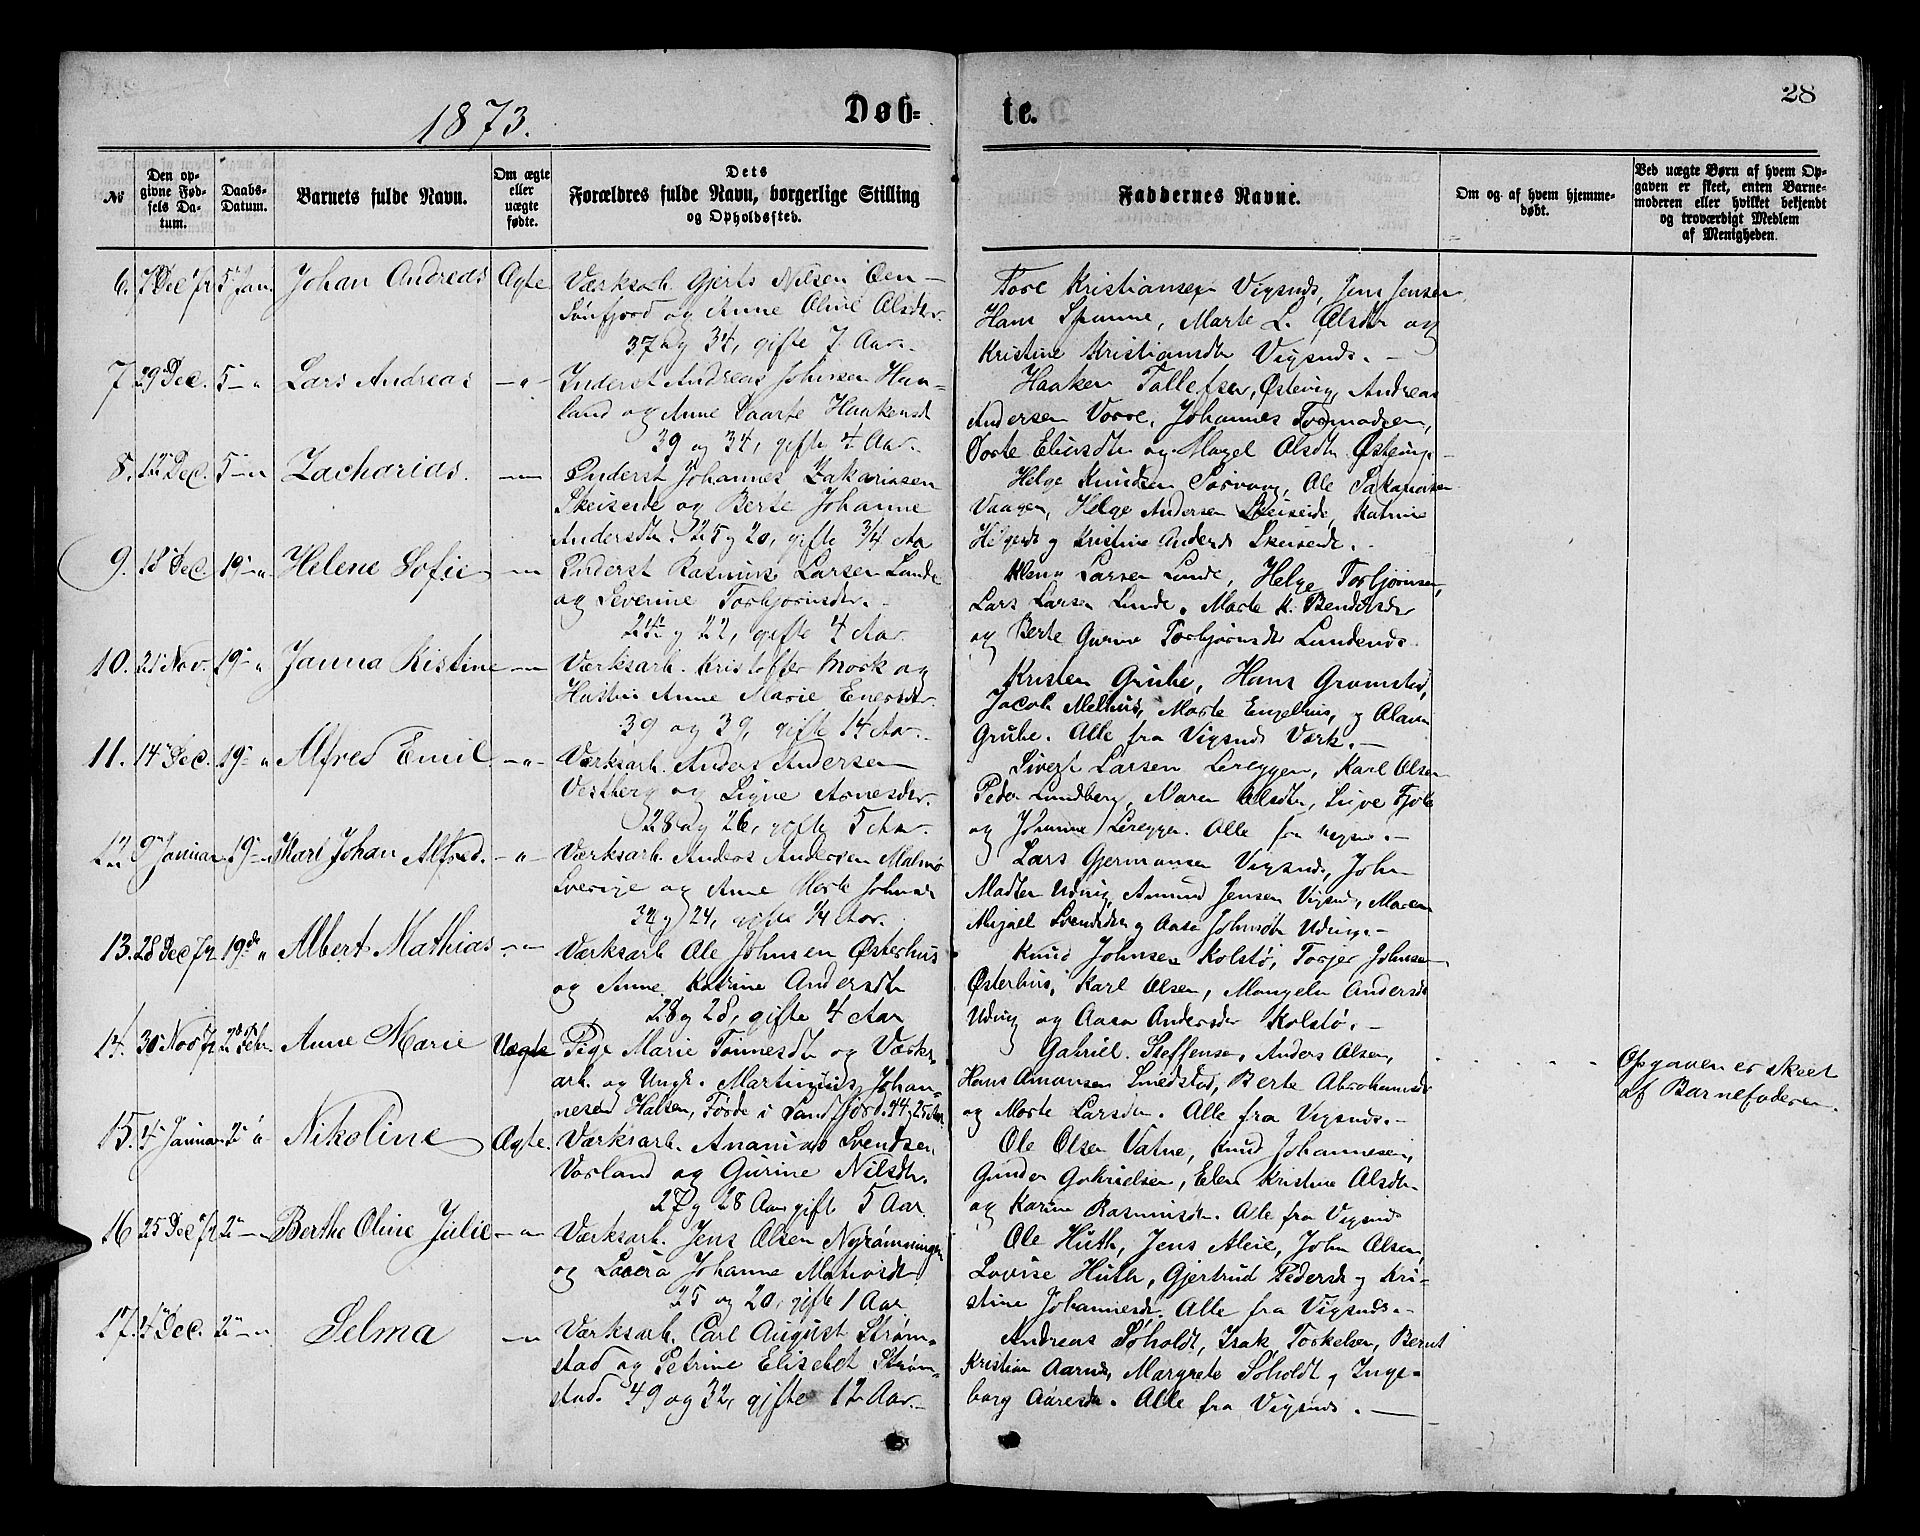 28
1873.
Døb-
te.
№
Den op-
givne Fød-
sels Da-
tum.
Daabs-
Datum.
Barnets fulde Navn.
Om ægte
eller
uægte
fødte.
Dets
Forældres fulde Navn, borgerlige Stilling
og Opholdssted.
Faddernes Navne.
Om og af hvem hjemme-
døbt.
Ved uægte Børn af hvem Op-
gaven er skeet, enten Barne-
moderen eller hvilket bekjendt
og troværdigt Medlem
af Menigheden.
6. 7 Dec 72 5 Jan. Johan Andreas Ægte Værksarb. Gjerts Nilsen Øen
Sønfjord og Anne Oline Olsdtr.
37 og 34, gifte 7 Aar.
Tore Kristiansen Vigsnæs, Jens Jensen
Hans Spanne, Marte L. Olsdtr og
Kristine Kristiansdtr Vigsnds.
7. 29 Dec. 5 - " Lars Andreas - " - Inderst Andreas Johnsen Haa-
land og Anne Vaarte Haakensdt
39 og 34, gifte 4 Aar.
Haaken Tollefsen, Østevig, Andreas
Andersen Vorre, Johannes Tormodsen,
Dorte Eliasdtr og Magel Olsdtr Østevig
8. 12 Dec. 5 - " Zacharias. Inderst Johannes Zakariasen
Skeiseide og Berte Johanne
Andersdtr. 25 og 20, gifte 3/4 Aar
Helge Knudsen Sørvaag, Ole Sakariasen
Vaagen, Helge Andersen Skeiseide, Katrine
Helgesdt og Kristine Andersdt Skeiseide.
9. 18 Dec. 19 - " Helene Sofie Inderst Rasmus Larsen Lunde
og Severine Torbjørnsdtr.
24 og 22, gifte 4 Aar.
Larsen Lunde, Helge Torbjørnsen,
Lars Larsen Lunde, Marte K. Bendiksdtr
og Berte Gurine Torbjørnsdtr Lundends.
10. 21 Nov. 19 - " Janna Kistine Værksarb. Kristoffer Mork og
Hustru Anne Marie Enersdtr
39 og 39, gifte 14 Aar.
Kristen Grube, Hans Gromstad,
Jacob Melhus, Marte Engelhus, og Olava
Grube. Alle fra Vigsnds Værk.
11. 14 Dec. 19 - " Alfred Emil - " - Værksarb. Anders Andersen
Vestberg og Signe Arnesdtr.
28 og 26, gifte 5 Aar.
Sivert Larsen Lereggen, Karl Olsen
Peder Lundberg, Maren Olsdtr,
og Johanne Lereggen. Alle fra Vigsns.
12 9 Januar 19 - " Karl Johan Alfred. - " - Værksarb. Anders Andersen Malmø
Sverige og Anne Marte Johnsdt
32 og 24, gifte 1/4 Aar.
Lars Gjermansen Vigsnds, John
Madsen Udvig, Amund Jensen Vigsnds, Maren
Svendsdtr og Aasa Johnsdtr Udvig.
13. 28 Dec 72 19de " Albert Mathias Værksarb Ole Johnsen Østerhus
og Anne Katrine Andersdtr
28 og 28, gifte 4 Aar
Knud Johnsen Kolstø, Torjer Johnsen
Østerhus, Karl Olsen, Mangela Andersdt
Udvig og Aasa Andersdtr Kolstø.
14. 30 Nov 72 2 Febr. Anne Marie Uægte Pige Marie Tønnesdtr og Værks-
arb. og Ungk. Martinius Johan-
nesen Halsen, Førde i Søndfjord. 24 og 25 Aar
Gabriel Steffensen, Anders Olsen,
Hans Amonsen Smedstad, Berte Abrahamsdt
og Marte Larsdtr. Alle fra Vigsnds.
Opgaven er skeet
af Barnefaderen.
15. 4 Januar 2 " Nikoline Ægte. Værksarb. Ananias Svendsen
Vorland og Gurine Nilsdtr.
27 og 28 Aar, gifte 5 Aar.
Ole Olsen Vatne, Knud Johannesen,
Gunder Gabrielsen, Elen Kristine Olsdtr
og Karine Rasmusdtr. Alle fra Vigsnds
16 25 Dec 72 2 - " Berthe Oline Julie - " - Værksarb. Jens Olsen Nyrømningen
og Laura Johanne Mathiasdtr
25 og 20, gifte 1 Aar.
Ole Huth, Jens Aleie, John Olsen,
Lovise Huth, Gjertrud Pedersdt og Kri-
stine Johannesdt. Alle fra Vigsnds.
17. 4 Dec. 2 - " Selma - " Værksarb. Carl August Strøm-
stad og Petrine Elisebet Strøm-
stad. 49 og 32, gifte 12 Aar.
Andreas Søholdt, Isak Torkelsen, Bernt
Kristian Aarnds, Margrete Søholdt og Inge-
borg Aaresdtr. Alle fra Vigsnds.